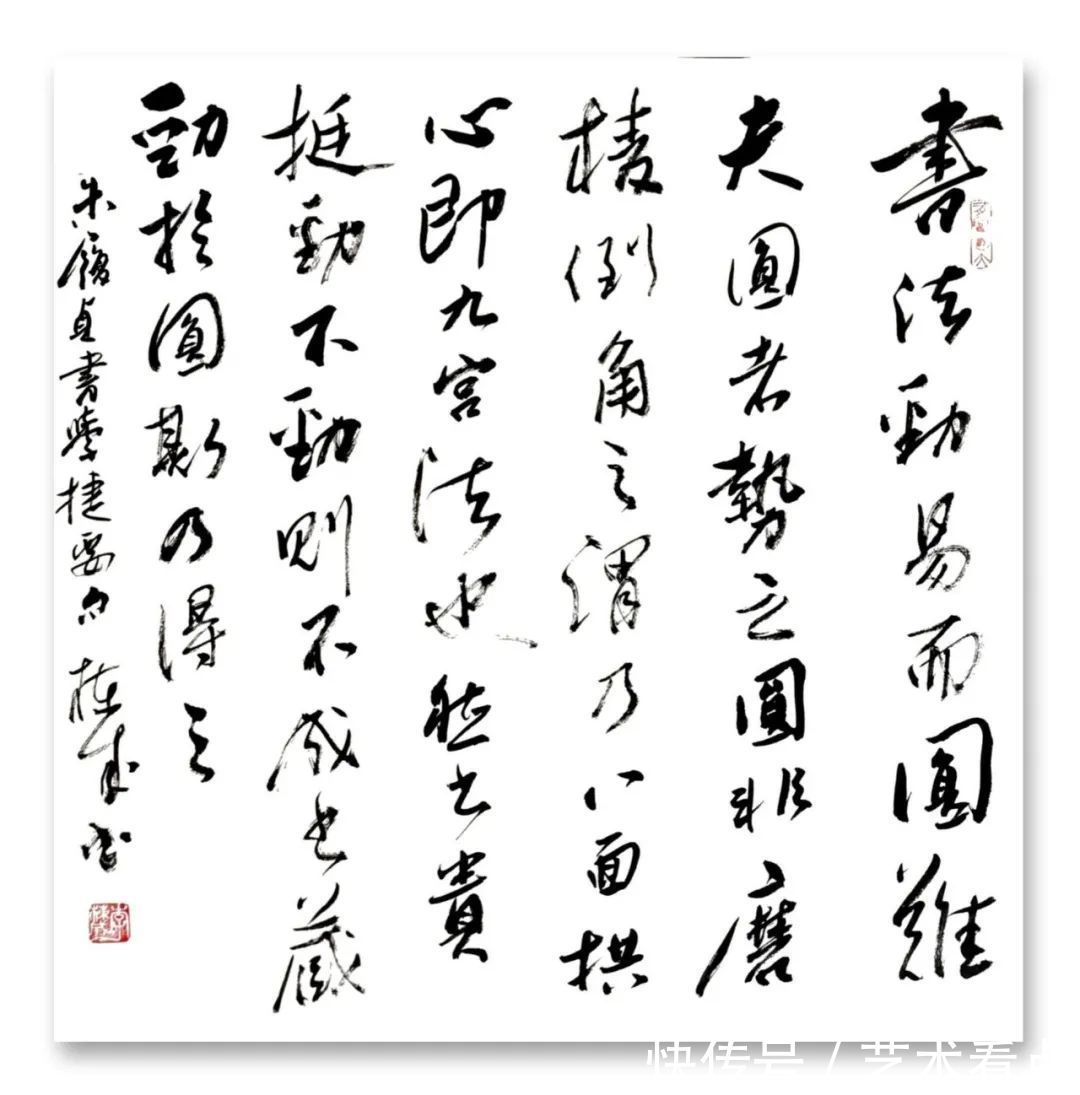 書法勁易而圓難
夫圓者勢之圓非磨
棱倒角之謂乃八面拱
心即九宫法也然書貴
挺勁不勁則不成書藏
勁於圓斯乃得之
朱履貞書學捷要句 栋成书
快传号 / 艺术看点